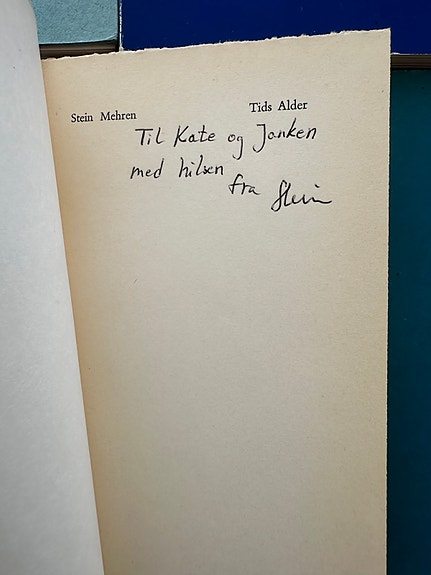 Stein Mehren Tids Alder
Til Kate og Janken
med hilsen
fra Stein